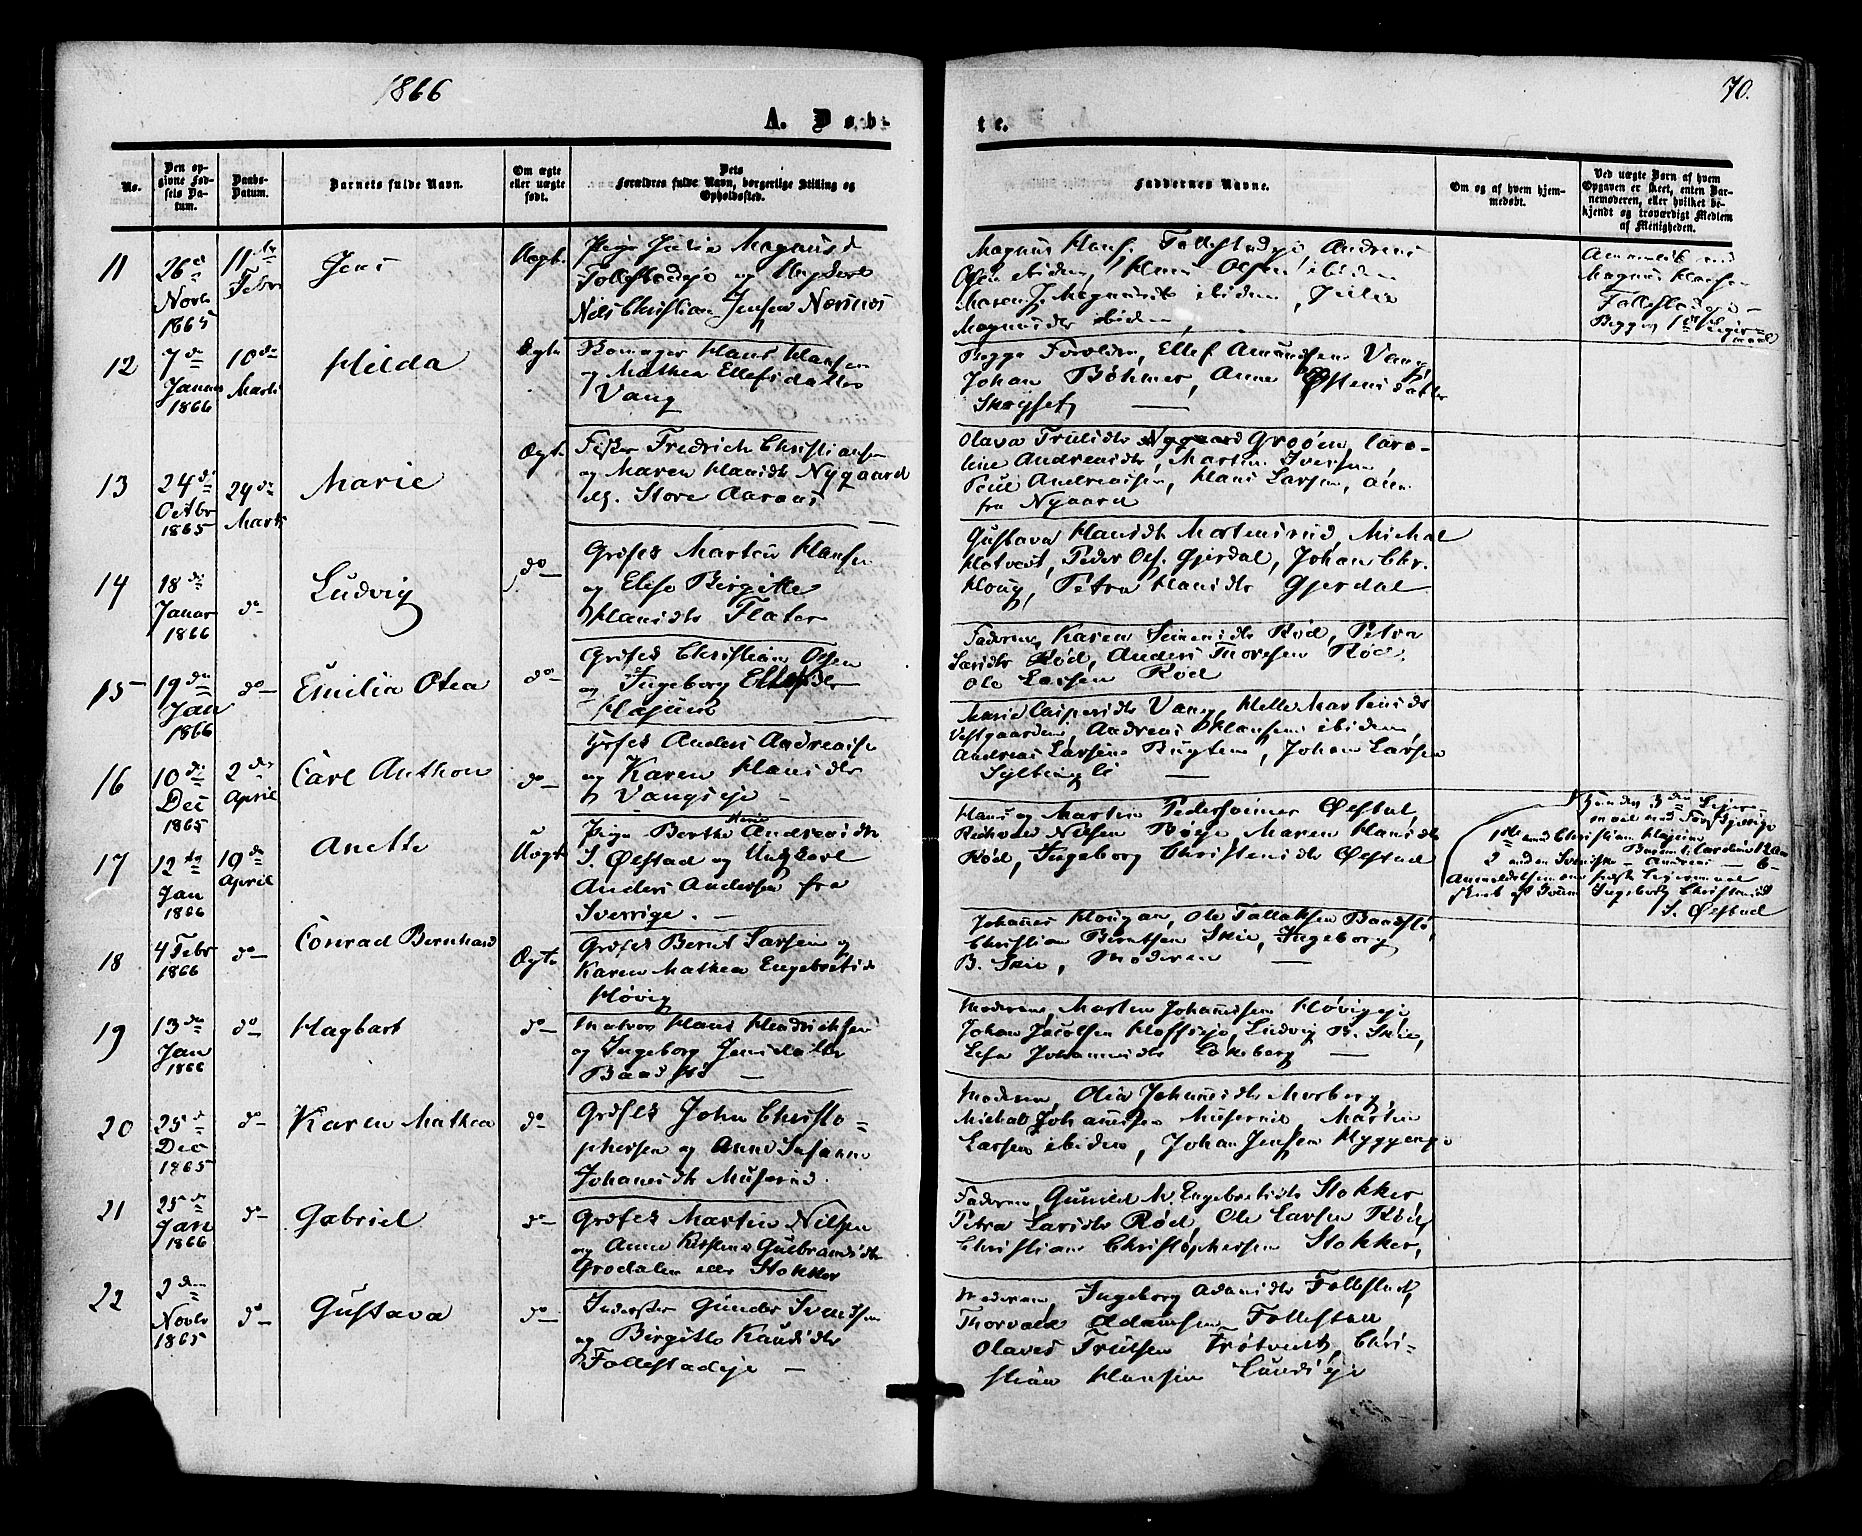 1866
70.
A. Døb-
te.
No.
Den op-
givne Fød-
sels Da-
tum.
Daabs-
Datum.
Barnets fulde Navn.
Om ægte
eller uægte
født.
Dets
Forældres fulde Navn, borgerlige Stilling og
Opholdssted.
Faddernes Navne.
Om og af hvem hjem-
medøbt.
Ved uægte Børn af hvem
Opgaven er skeet, enten Bar-
nemoderen, eller hvilket be-
kjendt og troværdigt Medlem
af Menigheden.
11
26de
Novbr
1865
11te
Febr
Jens
Uægt.
Pige Julie Magnusd
Follestadeje og Ungkarl
Nils Christian Jensen Næsnæs
Magnus Hans. Follestadeje, Andreas
Olsen ibidem, Hans Olsen ibidem
Maren J. Magnusdt ibidem, Julie
Magnusdtr ibidem
Magnus Hansen
Follestadeje
Begges 1ste Leier-
maal
12
7de
Januar
1866
10de
Marts
Hilda
Ægte
Hans Hansen
og Mathea Ellefsdatter
Vang
Begge Forældre, Ellef Amundsen Vang,
Johan Böhmer, Anne Østensdatter
Skøyset
13
24de
Octbr
1865
29de
Marts
Marie
Ægt.
Fisker Fredrich Christiansen
og Maren Hansdtr Nygaard
Store Aaraas
Olava Trulsdtr Groøen, Caro-
line Andreasdtr, Martin Iversen,
Poul Andreassen, Hans Larsen, alle
fra Nygaard
14
18de
Januar
1866
do
Ludvig
do
Grdfsk Martin Hansen
og Elise Birgitte
Hansdtr Flater
Gustava Hansdt Mortensrud, Michal
Hotvedt, Peder Ols. Gjerdal, Johan Chr.
Houg, Petra Hansdtr Gjerdal
15
19de
Jan
1866
do
Emilia Otea
do
Grdfsk Christian Olsen
og Ingeborg Ellefsdtr
Faderen, Karen Simensdtr Rød, Petra
Larsdtr Rød, Anders Thoresen Rød,
Ole Larsen Rød
16
10de
Dec
1865
2den
April
Carl Anthon
do
Grdfsk Anders Andreasen
og Karen Hansdtr
Vangseje
Marie Caspersdtr Vang, Helle Martinsdtr
Vestgaarden, Andreas Hansen ibidem,
Andreas Larsen Bugten, Johan Larsen
17
12te
Jan
1866
19de
April
Anette
Uægt
Pige Berthe Marie Andreasdtr
S. Ølstad og Ungkarl
Anders Andersen fra
Sverrige.
Hans og Martin Pedersønner Ølstad,
Nilsen Bøje, Maren Hansdtr
Rød, Ingeborg Christensdtr Ølstad
Ingeborg Christensd
S. Ølstad
18
4 Febr
1866
do
Conrad Bernhard
Ægte
Grdfsk Bernt Larsen og
Karen Mathea Engebretsdtr
Høvig
Johannes Hougan, Ole Tollefsen Baadstø,
Christian Berntsen Skie, Ingeborg
B. Skie, Moderen
19
13de
Jan
1866
do
Hagbart
do
Matros Hans Hendrichsen
og Ingeborg Jensdatter
Baadstø
Moderen, Martin Johannesen Høvigeje,
Johan Jacobsen, Ludvig B. Skie,
Johannesdtr Løkeberg
20
25de
Dec
1865
do
Karen Mathea
do
Grdfsk John Christo-
phersen og Anne Susanne
Johannesdtr Muserud.
Moderen, Olea Johannesdtr Morberg,
Michal Johannesen Muserud, Martin
Larsen ibidem, Johan Jensen
21
25de
Jan
1866
do
Gabriel
do
Grdfsk Martin Nilsen
og Anne Kirstine Gulbrandsdtr
Grodalen eller Stokker
Faderen, Gunild M. Engebretsdtr Stokker
Petra Larsdtr Rød, Ole Larsen Rød,
Christian Christophersen Stokker,
22
2den
Novbr
1865
do
Gustava
do
Inderster Gunder Svendsen
og Birgitte Knudsdtr
Follestadeje
Moderen, Ingeborg Adamsdtr Follestad,
Thorvald Adamsen Follestad
Olaves Trulsen Trøtvedt, Chri-
stian Hansen Lundseje